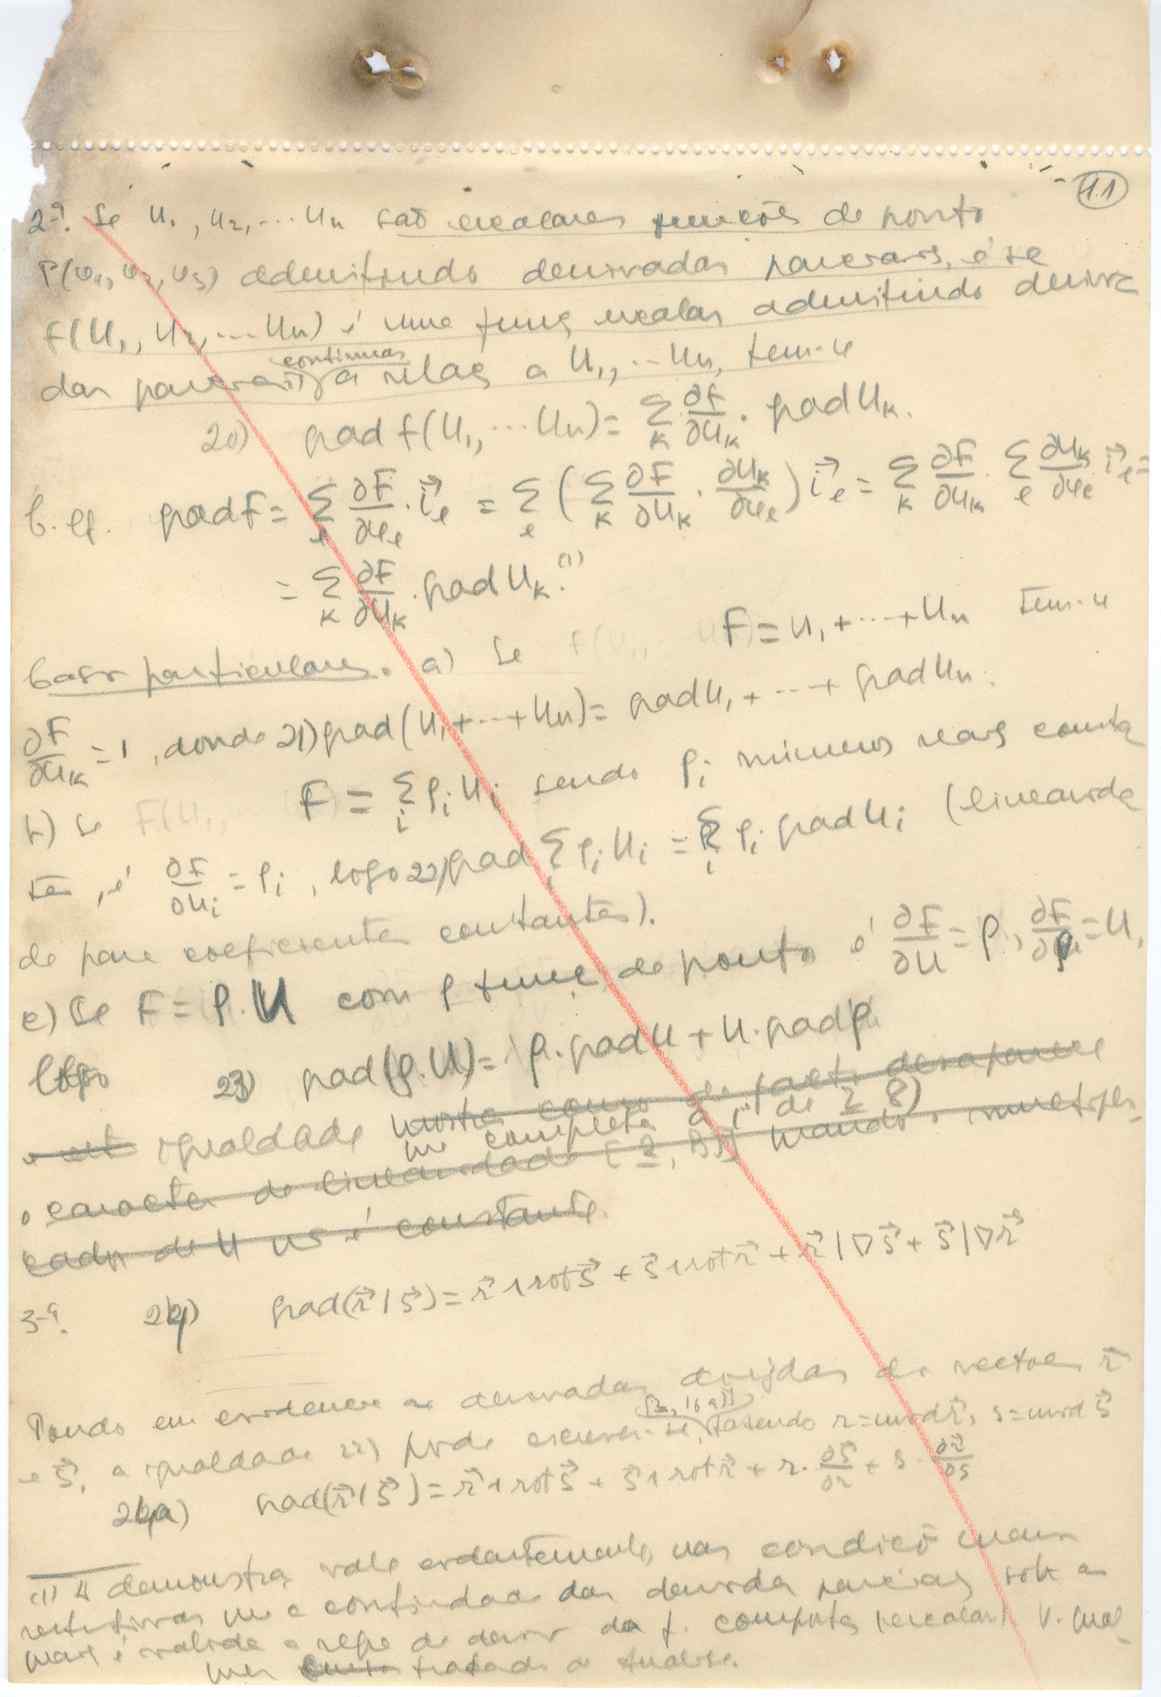 11
2ª. Se u₁, u₂, ... uₙ são escalares funções de ponto
P(φ₁, φ₂, φ₃) admitindo derivadas parciais, e se
f(u₁, u₂, ... uₙ) é uma funç escalar admitindo deriva
das parciais continuas em relaç a u₁, ... uₙ, tem-se
20) grad f(u₁, ... uₙ) = Σₖ ∂f/∂uₖ · grad uₖ.
C. ef. grad F = Σₑ ∂F/∂φₑ · i⃗ₑ = Σₑ (Σₖ ∂F/∂uₖ · ∂uₖ/∂φₑ) i⃗ₑ = Σₖ ∂F/∂uₖ · Σₑ ∂uₖ/∂φₑ · i⃗ₑ =
= Σₖ ∂F/∂uₖ · grad uₖ.⁽¹⁾
Casos particulares. a) Se F = u₁ + ... + uₙ tem-se
∂F/∂uₖ = 1, donde 21) grad (u₁ + ... + uₙ) = grad u₁ + ... + grad uₙ.
b) Se F = Σᵢ ρᵢ uᵢ sendo ρᵢ números reais constan
tes, é ∂F/∂uᵢ = ρᵢ, logo 22) grad Σᵢ ρᵢ uᵢ = Σᵢ ρᵢ grad uᵢ (linearida
de para coeficientes constantes).
c) Se F = ρ.u com ρ funç de ponto é ∂F/∂u = ρ, ∂F/∂ρ = u,
logo 23) grad (ρ.u) = ρ.grad u + u.grad ρ
igualdade mostra como de facto desaparece
que completa a de 8)
o caracter de linearidade quando o multipli-
cador de u não é constante.
3ª. 24) grad(r⃗ | s⃗) = r⃗ ∧ rot s⃗ + s⃗ ∧ rot r⃗ + r⃗ | ∇s⃗ + s⃗ | ∇r⃗
Pondo em evidencia as derivadas dirigidas dos vectores r⃗
e s⃗, a igualdade pode escrever-se, fazendo r = mod r⃗, s = mod s⃗
24a) grad(r⃗ | s⃗) = r⃗ ∧ rot s⃗ + s⃗ ∧ rot r⃗ + r · ∂s⃗/∂r + s · ∂r⃗/∂s
(1) A demonstraç vale evidentemente nas condiçõ mais
restritivas que a continuidade das derivadas parciais sob as
quais é valida a regra de deriv da f. composta (escalar) V. qual-
quer tratado de Analise.